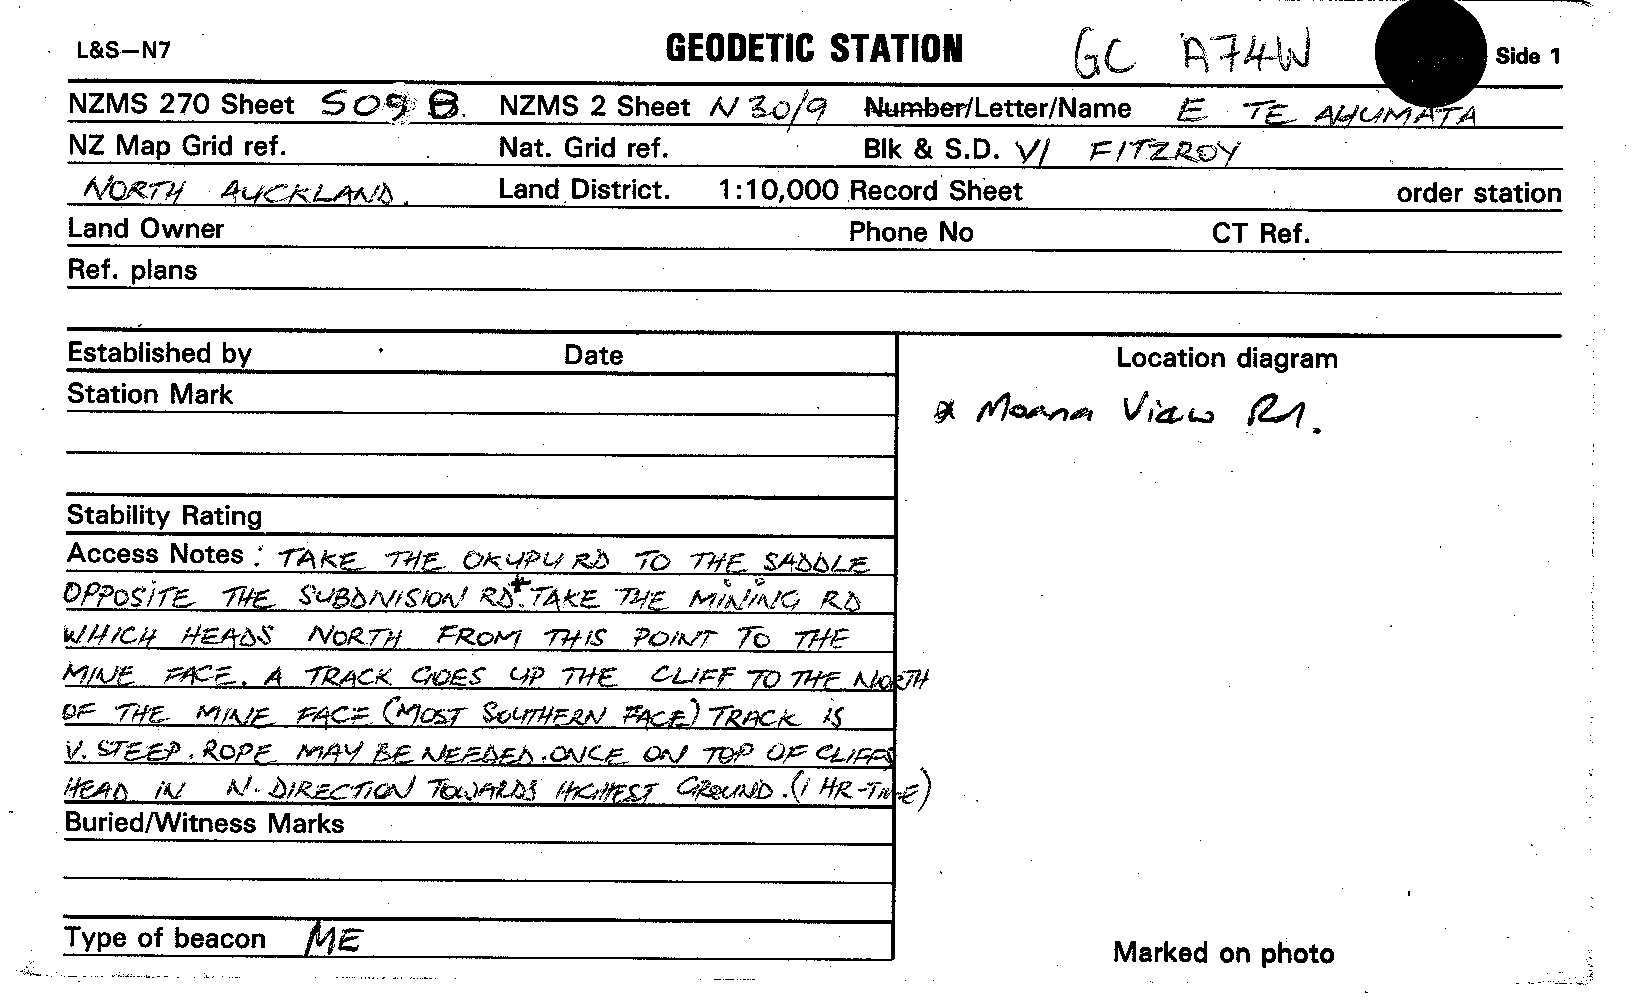 L&S–N7 GEODETIC STATION GC A74W Side 1
NZMS 270 Sheet S09 B. NZMS 2 Sheet N30/9 Number/Letter/Name E TE AHUMATA
NZ Map Grid ref. Nat. Grid ref. Blk & S.D. VI FITZROY
NORTH AUCKLAND. Land District. 1:10,000 Record Sheet order station
Land Owner Phone No CT Ref.
Ref. plans
Established by Date
Station Mark
Stability Rating
Access Notes : TAKE THE OKUPU RD TO THE SADDLE
OPPOSITE THE SUBDIVISION RD*. TAKE THE "MINING RD
WHICH HEADS NORTH FROM THIS POINT TO THE
MINE FACE. A TRACK GOES UP THE CLIFF TO THE NORTH
OF THE MINE FACE (MOST SOUTHERN FACE) TRACK IS
V. STEEP. ROPE MAY BE NEEDED. ONCE ON TOP OF CLIFFS
HEAD IN N. DIRECTION TOWARDS HIGHEST GROUND. (1 HR-TIME)
Buried/Witness Marks
Type of beacon ME
Location diagram
* Moana View Rd.
Marked on photo